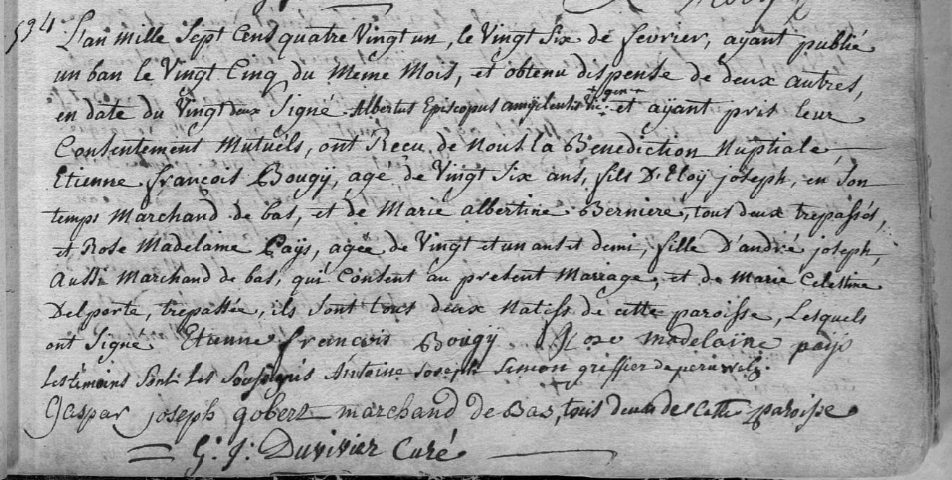 534. L'an mille Sept Cens quatre Vingt un, le Vingt Six de fevrier, aÿant publié
un ban le Vingt Cinq du Meme Mois, et obtenu dispense de deux autres,
en date du Vingt deux Signé Albertus Episcopus amyclensis Vic. gen. et aÿant pris leur
Consentement Mutuels, ont Recu de Nous la Benediction Nuptiale
Etienne françois Bougÿ, agé de Vingt Six ans, fils D'Eloÿ joseph, en Son
temps Marchand de bas, et de Marie albertine Berniere, tous deux trepassés,
et Rose Madelaine Païs, agée de Vingt et un ans et demi, fille d'andré joseph,
Aussi Marchand de bas, qui Consent au present Mariage, et de Marie Celestine
Delporte, trepassée, ils Sont tous deux Natifs de cette paroisse, Lesquels
ont Signé Etienne francois Bougÿ Rose madelaine païs
Les témoins Sont Les Soussignés Antoine Joseph Simon greffier de peruwelz.
Gaspar joseph gobert marchand de Bas, tous deux de Cette paroisse
G: J: Duvivier Curé